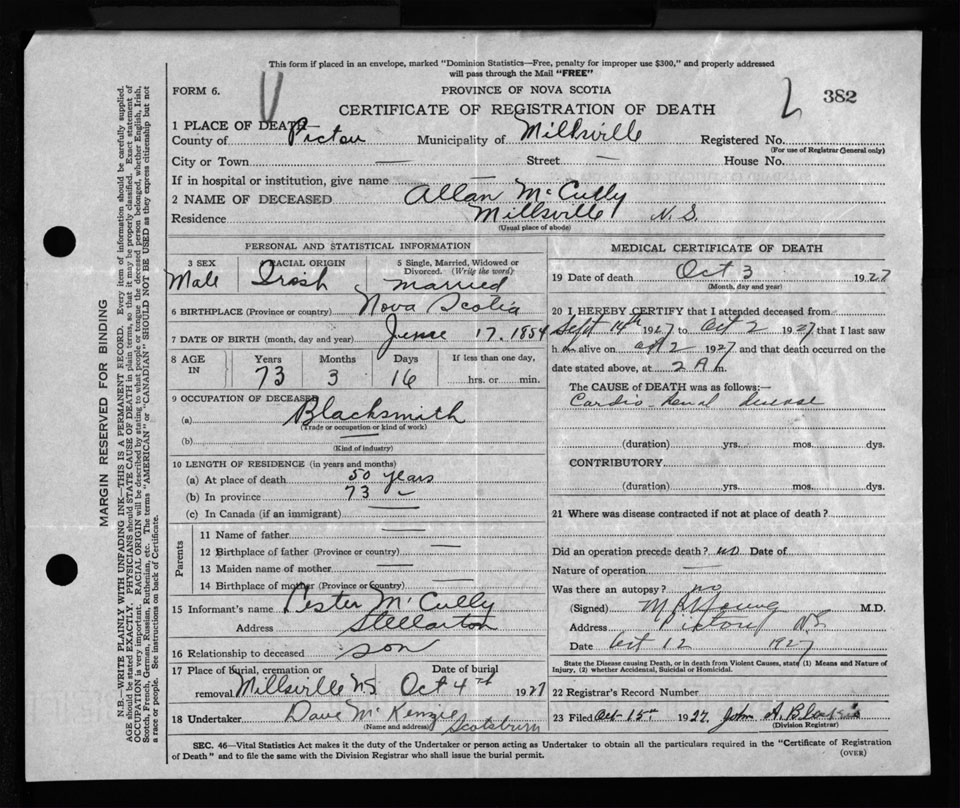 This form if placed in an envelope, marked "Dominion Statistics—Free, penalty for improper use $300," and properly addressed
will pass through the Mail "FREE"
FORM 6.
PROVINCE OF NOVA SCOTIA
CERTIFICATE OF REGISTRATION OF DEATH
382
1 PLACE OF DEATH
County of Pictou Municipality of Millsville Registered No.
(For use of Registrar General only)
City or Town — Street — House No.
If in hospital or institution, give name —
2 NAME OF DECEASED Allan McCully
Residence Millsville N.S.
(Usual place of abode)
PERSONAL AND STATISTICAL INFORMATION
3 SEX RACIAL ORIGIN 5 Single, Married, Widowed or Divorced. (Write the word)
Male Irish married
6 BIRTHPLACE (Province or country) Nova Scotia
7 DATE OF BIRTH (month, day and year) June 17, 1854
8 AGE IN Years Months Days If less than one day,
73 3 16 hrs. or min.
9 OCCUPATION OF DECEASED
(a) Blacksmith
(Trade or occupation or kind of work)
(b) —
(Kind of industry)
10 LENGTH OF RESIDENCE (in years and months)
(a) At place of death 50 years
(b) In province 73 –
(c) In Canada (if an immigrant) —
Parents
11 Name of father —
12 Birthplace of father (Province or country) —
13 Maiden name of mother —
14 Birthplace of mother (Province or Country) —
15 Informant's name Lester McCully
Address Stellarton
16 Relationship to deceased son
17 Place of burial, cremation or removal Date of burial
Millsville N.S. Oct 4th 1927
18 Undertaker Dave McKenzie
(Name and address) Scotsburn
MEDICAL CERTIFICATE OF DEATH
19 Date of death Oct 3 1927
(Month, day and year)
20 I HEREBY CERTIFY that I attended deceased from
Sept 14th 1927 to Oct 2 1927 that I last saw
h alive on Oct 2 1927 and that death occurred on the
date stated above, at 2 A m.
The CAUSE OF DEATH was as follows:—
Cardio-Renal disease
(duration) yrs. mos. dys.
CONTRIBUTORY
(duration) yrs. mos. dys.
21 Where was disease contracted if not at place of death?
Did an operation precede death? no Date of
Nature of operation —
Was there an autopsy? no
(Signed) Young M.D.
Address Pictou N.S.
Date Oct 12 1927
State the Disease causing Death, or in death from Violent Causes, state (1) Means and Nature of
Injury, (2) whether Accidental, Suicidal or Homicidal.
22 Registrar's Record Number
23 Filed Oct 15th 1927. John A.
(Division Registrar)
SEC. 46—Vital Statistics Act makes it the duty of the Undertaker or person acting as Undertaker to obtain all the particulars required in the "Certificate of Registration
of Death" and to file the same with the Division Registrar who shall issue the burial permit. (OVER)
MARGIN RESERVED FOR BINDING
N.B.—WRITE PLAINLY WITH UNFADING INK—THIS IS A PERMANENT RECORD. Every item of information should be carefully supplied.
AGE should be stated EXACTLY. PHYSICIANS should STATE CAUSE OF DEATH in plain terms, so that it may be properly classified. Exact statement of
OCCUPATION is very important. RACIAL ORIGIN will be described by stating to what people or tongue the deceased person belonged, whether English, Irish,
Scotch, French, German, Russian, Ruthenian, etc. The terms "AMERICAN" or "CANADIAN" SHOULD NOT BE USED as they express citizenship but not
a race or people. See instructions on back of Certificate.